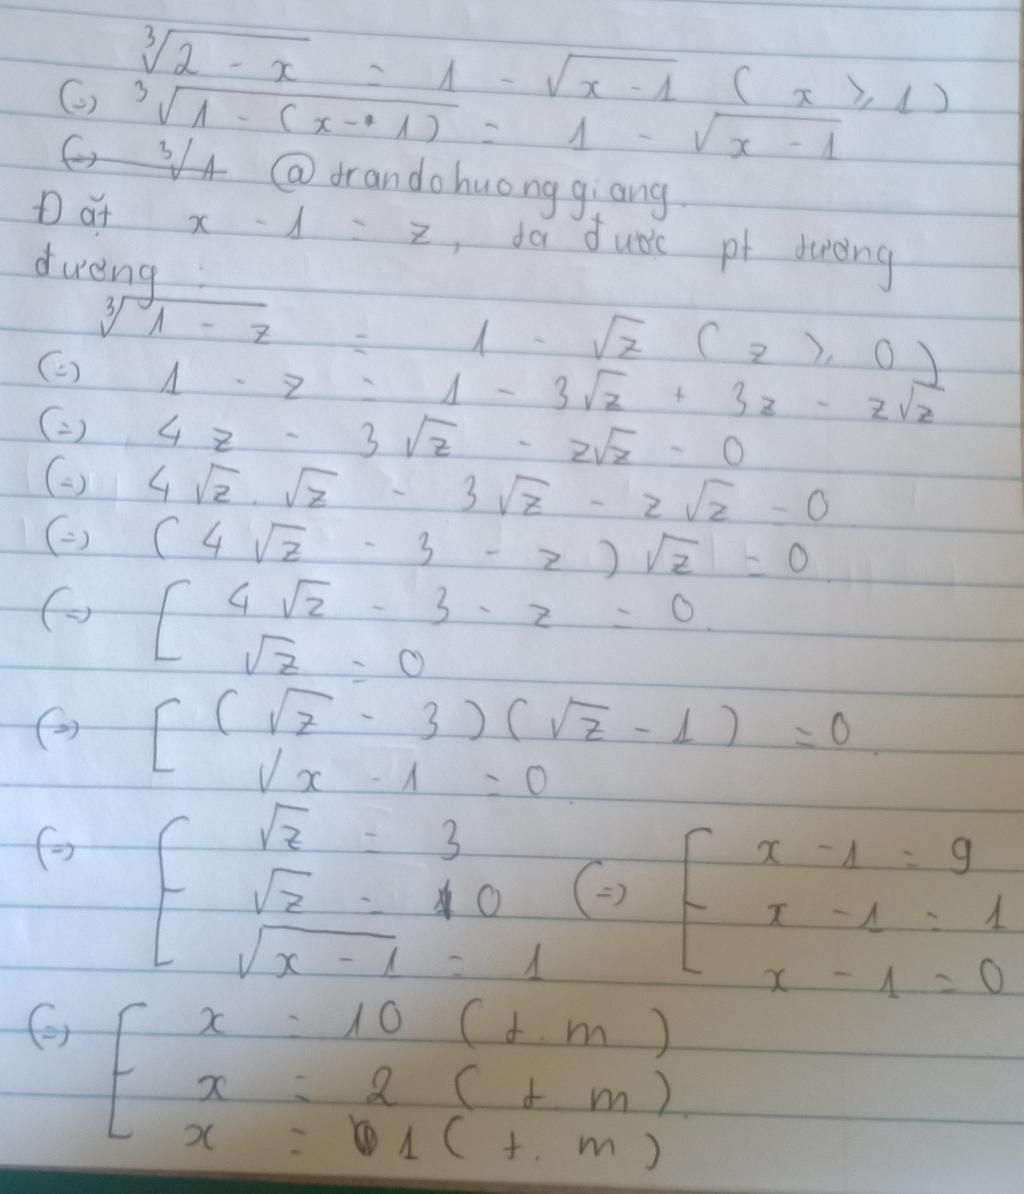 ∛(2 - x) = 1 - √(x - 1) (x ≥ 1)
(=) ∛(1 - (x - 1)) = 1 - √(x - 1)
(=) ∛1 @trandohuonggiang.
Đặt x - 1 = z, ta được pt tương
đương :
∛(1 - z) = 1 - √z (z ≥ 0)
(=) 1 - z = 1 - 3√z + 3z - z√z
(=) 4z - 3√z - z√z = 0
(=) 4√z . √z - 3√z - z√z = 0
(=) (4√z - 3 - z)√z = 0
(=) [ 4√z - 3 - z = 0
√z = 0
(=) [ (√z - 3)(√z - 1) = 0
√x - 1 = 0
(=) [ √z = 3 (=) [ x - 1 = 9
√z = 0 x - 1 = 1
√(x - 1) = 1 x - 1 = 0
(=) [ x = 10 (t.m)
x = 2 (t.m)
x = 1 (t.m)